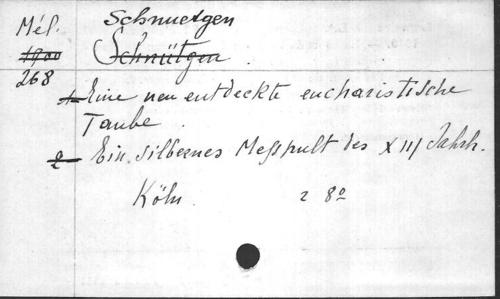 Mél. Schnuetgen
1900 Schnütgen.
268
1- Eine neu entdeckte eucharistische
Taube
2- Ein silbernes Messpult des XIIJ Jahrh.
Köln. 2 8º